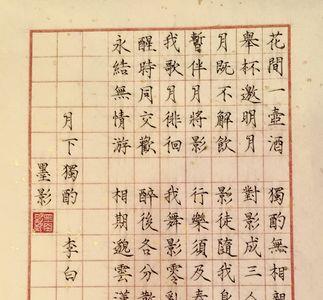 花間一壺酒　獨酌無相親
舉杯邀明月　對影成三人
月既不解飲　影徒隨我身
暫伴月將影　行樂須及春
我歌月徘徊　我舞影零亂
醒時同交歡　醉後各分散
永結無情游　相期邈雲漢
月下獨酌　李白
墨影